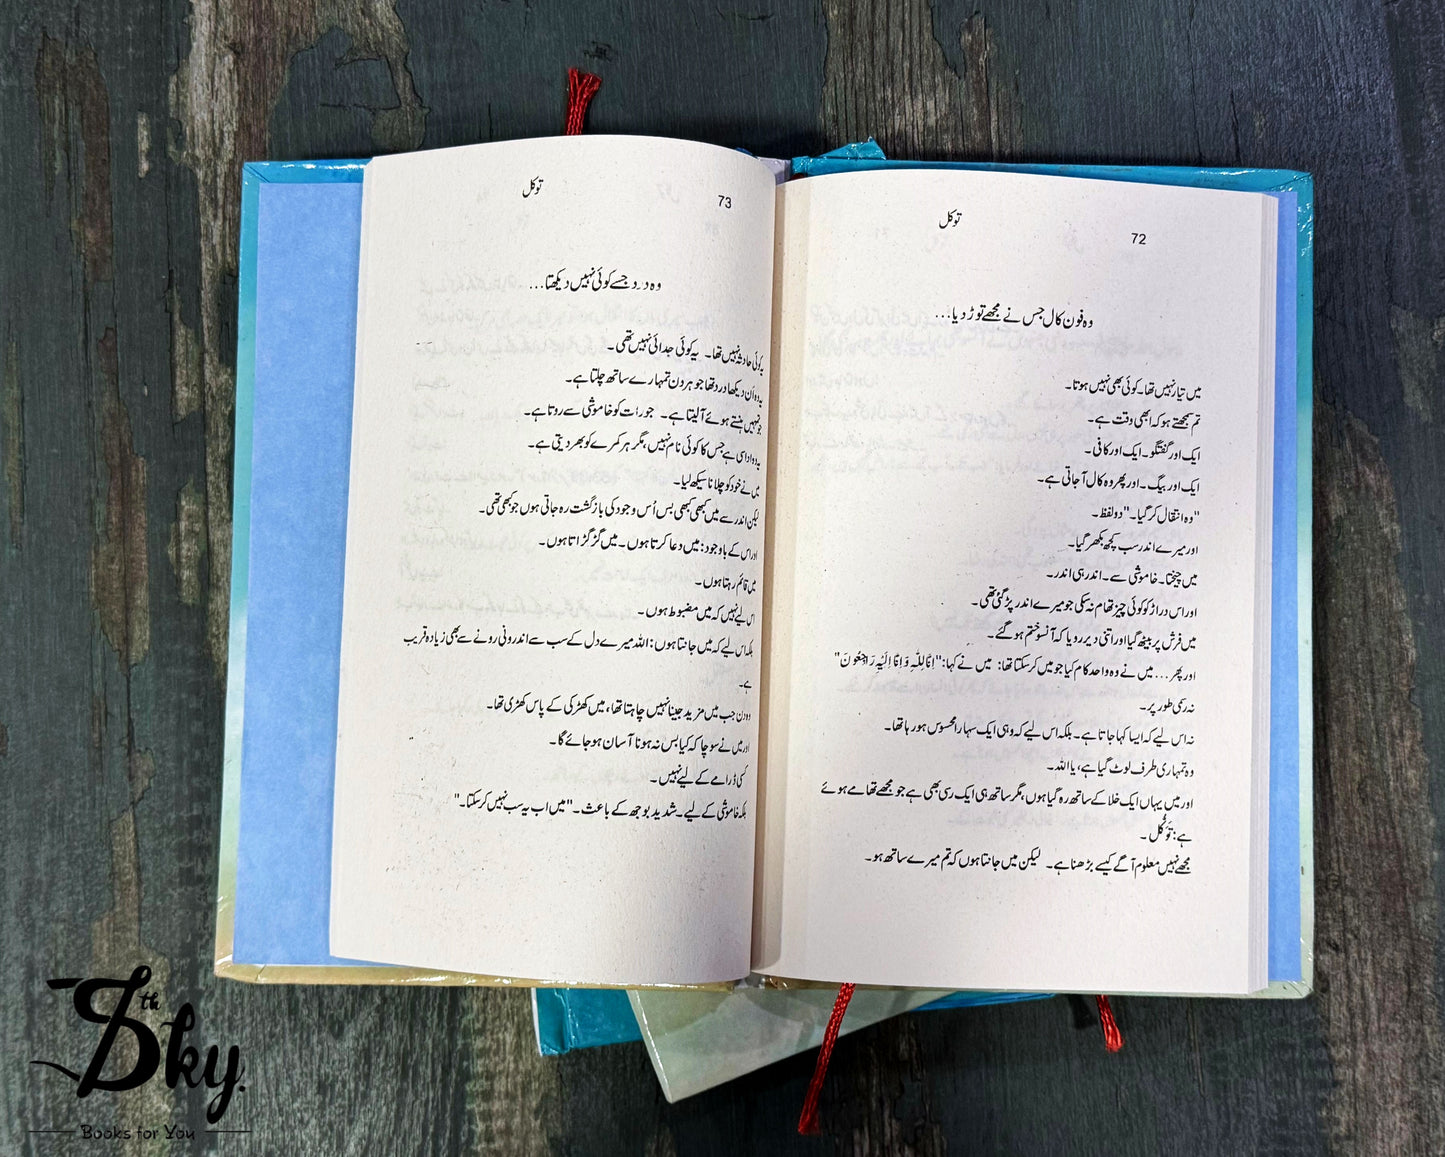 توکل
72
وہ فون کال جس نے مجھے توڑ دیا...
میں تیار نہیں تھا۔ کوئی بھی نہیں ہوتا۔
تم سمجھتے ہو کہ ابھی وقت ہے۔
ایک اور گفتگو۔ ایک اور کافی۔
ایک اور بیگ۔ اور پھر وہ کال آ جاتی ہے۔
"وہ انتقال کر گیا۔" دو لفظ۔
اور میرے اندر سب کچھ بکھر گیا۔
میں چیختا۔ خاموشی سے۔ اندر ہی اندر۔
اور اس دراڑ کو کوئی چیز تھام نہ سکی جو میرے اندر پڑ گئی تھی۔
میں فرش پر بیٹھ گیا اور اتنی دیر رویا کہ آنسو ختم ہو گئے۔
اور پھر... میں نے وہ واحد کام کیا جو میں کر سکتا تھا: میں نے کہا: "اِنَّا لِلّٰہِ وَ اِنَّا اِلَیْہِ رَاجِعُوْنَ"
نہ رسمی طور پر۔
نہ اس لیے کہ ایسا کہا جاتا ہے۔ بلکہ اس لیے کہ وہی ایک سہارا محسوس ہو رہا تھا۔
وہ تمہاری طرف لوٹ گیا ہے، یا اللہ۔
اور میں یہاں ایک خلا کے ساتھ رہ گیا ہوں، مگر ساتھ ہی ایک رسی بھی ہے جو مجھے تھامے ہوئے
ہے: تَوَکُّل۔
مجھے نہیں معلوم آگے کیسے بڑھنا ہے۔ لیکن میں جانتا ہوں کہ تم میرے ساتھ ہو۔
توکل
73
وہ درد جسے کوئی نہیں دیکھتا...
یہ کوئی حادثہ نہیں تھا۔ یہ کوئی جدائی نہیں تھی۔
یہ وہ اَن دیکھا درد تھا جو ہر دن تمہارے ساتھ چلتا ہے۔
جو تمہیں ہنستے ہوئے آ لیتا ہے۔ جو رات کو خاموشی سے روتا ہے۔
یہ وہ اداسی ہے جس کا کوئی نام نہیں، مگر ہر کمرے کو بھر دیتی ہے۔
میں نے خود کو چلانا سیکھ لیا۔
لیکن اندر سے میں کبھی کبھی بس اُس وجود کی بازگشت رہ جاتی ہوں جو کبھی تھی۔
اور اس کے باوجود: میں دعا کرتا ہوں۔ میں گڑگڑاتا ہوں۔
میں قائم رہتا ہوں۔
اس لیے نہیں کہ میں مضبوط ہوں۔
بلکہ اس لیے کہ میں جانتا ہوں: اللہ میرے دل کے سب سے اندرونی رونے سے بھی زیادہ قریب
ہے۔
وہ دن جب میں مزید جینا نہیں چاہتا تھا، میں کھڑکی کے پاس کھڑی تھا۔
اور میں نے سوچا کہ کیا بس نہ ہونا آسان ہو جائے گا۔
کسی ڈرامے کے لیے نہیں۔
بلکہ خاموشی کے لیے۔ شدید بوجھ کے باعث۔ "میں اب یہ سب نہیں کر سکتا۔"
th
Sky.
Books for You